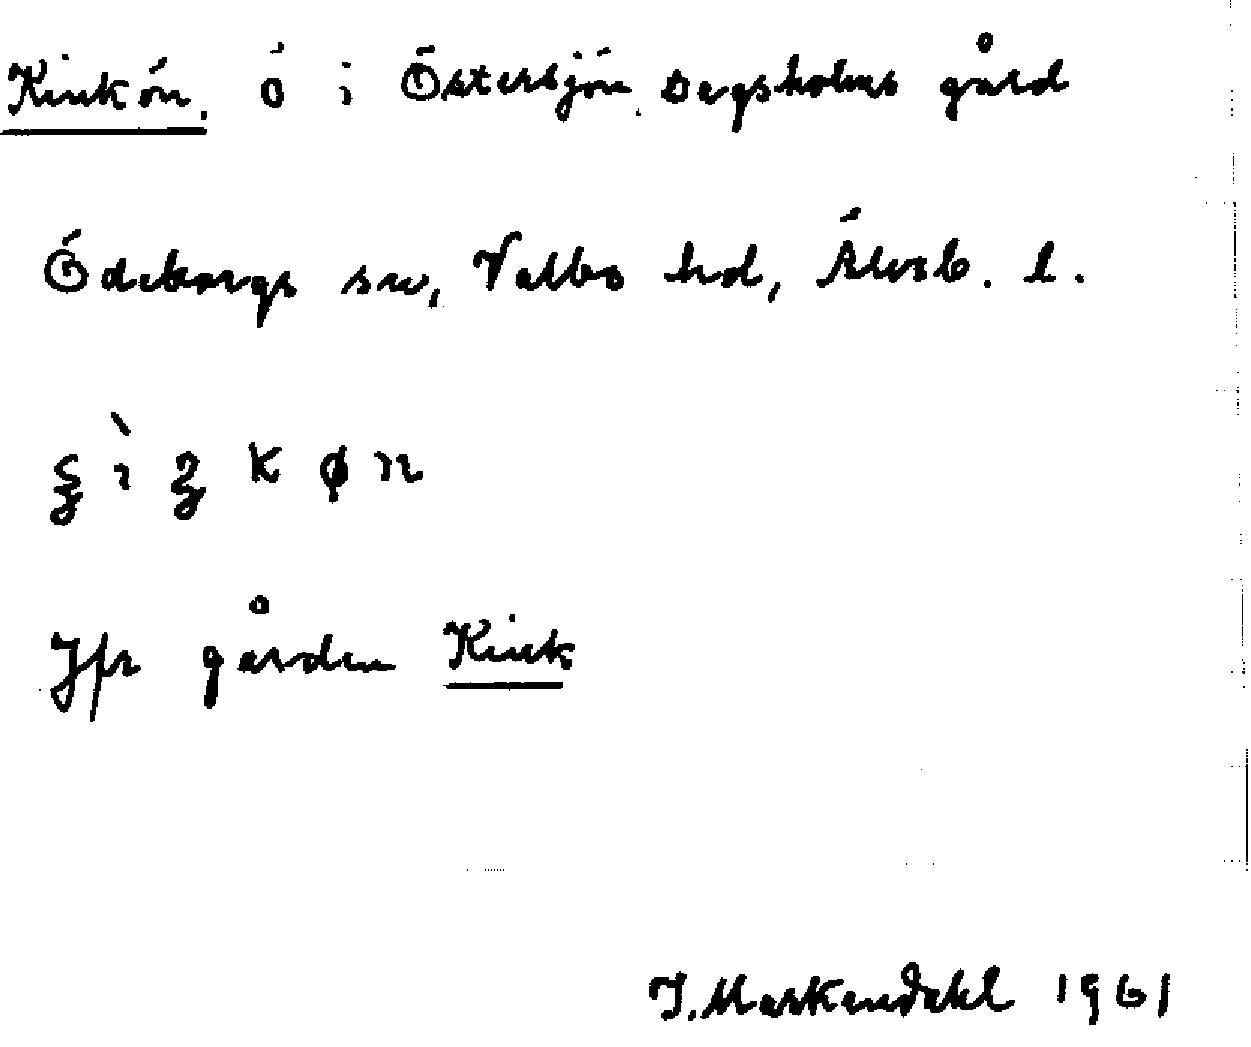 Kinkön. ö i Östersjön. Dagsholms gård
Ödeborgs sn, Valbo hd, Älvsb. l.
kön
Jfr gården Kink
J. Markendahl 1961